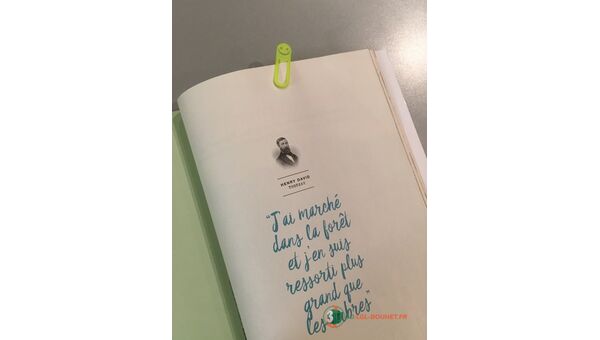 HENRY DAVID
THOREAU
"J'ai marché
dans la forêt
et j'en suis
ressorti plus
grand que
les arbres"